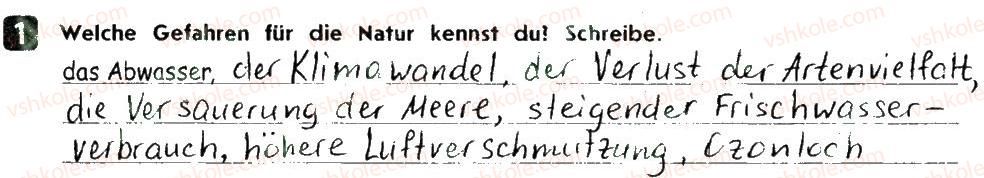 1 Welche Gefahren für die Natur kennst du? Schreibe.
das Abwasser, der Klimawandel, der Verlust der Artenvielfalt,
die Versauerung der Meere, steigender Frischwasser-
verbrauch, höhere Luftverschmutzung, Ozonloch